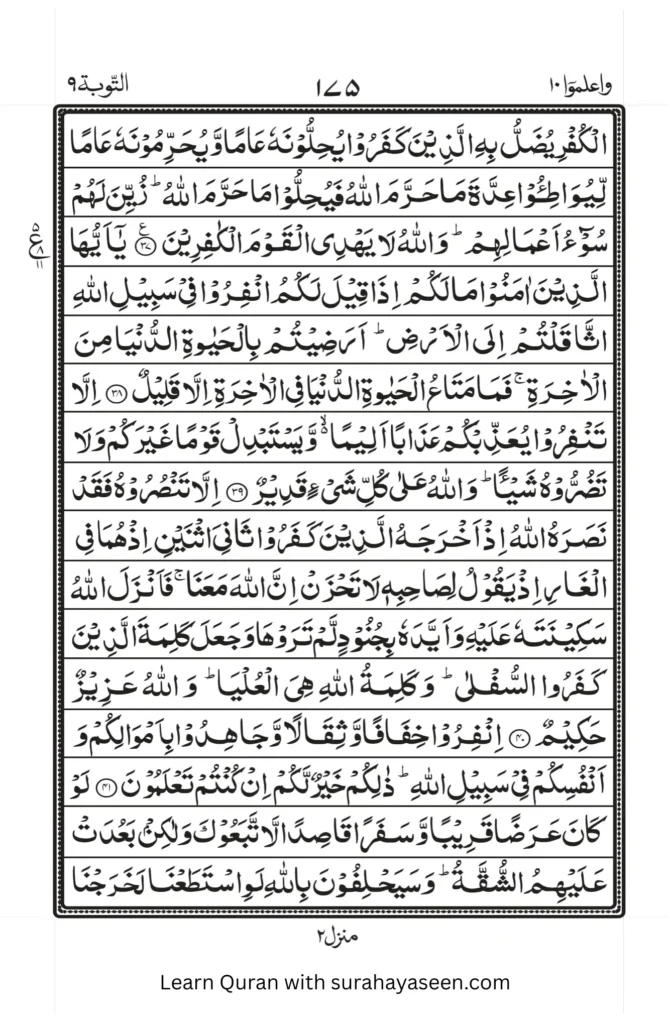 واعلموٓا ١٠ ١٧٥ التّوبة ٩
الْكُفْرِ يُضَلُّ بِهِ الَّذِيْنَ كَفَرُوْا يُحِلُّوْنَهٗ عَامًا وَّيُحَرِّمُوْنَهٗ عَامًا
لِّيُوَاطِـُٔوْا عِدَّةَ مَا حَرَّمَ اللّٰهُ فَيُحِلُّوْا مَا حَرَّمَ اللّٰهُ ؕ زُيِّنَ لَهُمْ
سُوْٓءُ اَعْمَالِهِمْ ؕ وَاللّٰهُ لَا يَهْدِى الْقَوْمَ الْكٰفِرِيْنَ ﴿٣٧﴾ يٰٓاَيُّهَا
الَّذِيْنَ اٰمَنُوْا مَا لَكُمْ اِذَا قِيْلَ لَكُمُ انْفِرُوْا فِيْ سَبِيْلِ اللّٰهِ
اثَّاقَلْتُمْ اِلَى الْاَرْضِ ؕ اَرَضِيْتُمْ بِالْحَيٰوةِ الدُّنْيَا مِنَ
الْاٰخِرَةِ ۚ فَمَا مَتَاعُ الْحَيٰوةِ الدُّنْيَا فِي الْاٰخِرَةِ اِلَّا قَلِيْلٌ ﴿٣٨﴾ اِلَّا
تَنْفِرُوْا يُعَذِّبْكُمْ عَذَابًا اَلِيْمًا ۙ وَّيَسْتَبْدِلْ قَوْمًا غَيْرَكُمْ وَلَا
تَضُرُّوْهُ شَيْـًٔا ؕ وَاللّٰهُ عَلٰى كُلِّ شَىْءٍ قَدِيْرٌ ﴿٣٩﴾ اِلَّا تَنْصُرُوْهُ فَقَدْ
نَصَرَهُ اللّٰهُ اِذْ اَخْرَجَهُ الَّذِيْنَ كَفَرُوْا ثَانِيَ اثْنَيْنِ اِذْ هُمَا فِي
الْغَارِ اِذْ يَقُوْلُ لِصَاحِبِهٖ لَا تَحْزَنْ اِنَّ اللّٰهَ مَعَنَا ۚ فَاَنْزَلَ اللّٰهُ
سَكِيْنَتَهٗ عَلَيْهِ وَاَيَّدَهٗ بِجُنُوْدٍ لَّمْ تَرَوْهَا وَجَعَلَ كَلِمَةَ الَّذِيْنَ
كَفَرُوا السُّفْلٰى ؕ وَكَلِمَةُ اللّٰهِ هِىَ الْعُلْيَا ؕ وَاللّٰهُ عَزِيْزٌ
حَكِيْمٌ ﴿٤٠﴾ اِنْفِرُوْا خِفَافًا وَّثِقَالًا وَّجَاهِدُوْا بِاَمْوَالِكُمْ وَ
اَنْفُسِكُمْ فِيْ سَبِيْلِ اللّٰهِ ؕ ذٰلِكُمْ خَيْرٌ لَّكُمْ اِنْ كُنْتُمْ تَعْلَمُوْنَ ﴿٤١﴾ لَوْ
كَانَ عَرَضًا قَرِيْبًا وَّسَفَرًا قَاصِدًا لَّاتَّبَعُوْكَ وَلٰكِنْۢ بَعُدَتْ
عَلَيْهِمُ الشُّقَّةُ ؕ وَسَيَحْلِفُوْنَ بِاللّٰهِ لَوِ اسْتَطَعْنَا لَخَرَجْنَا
منزل ٢
Learn Quran with surahayaseen.com